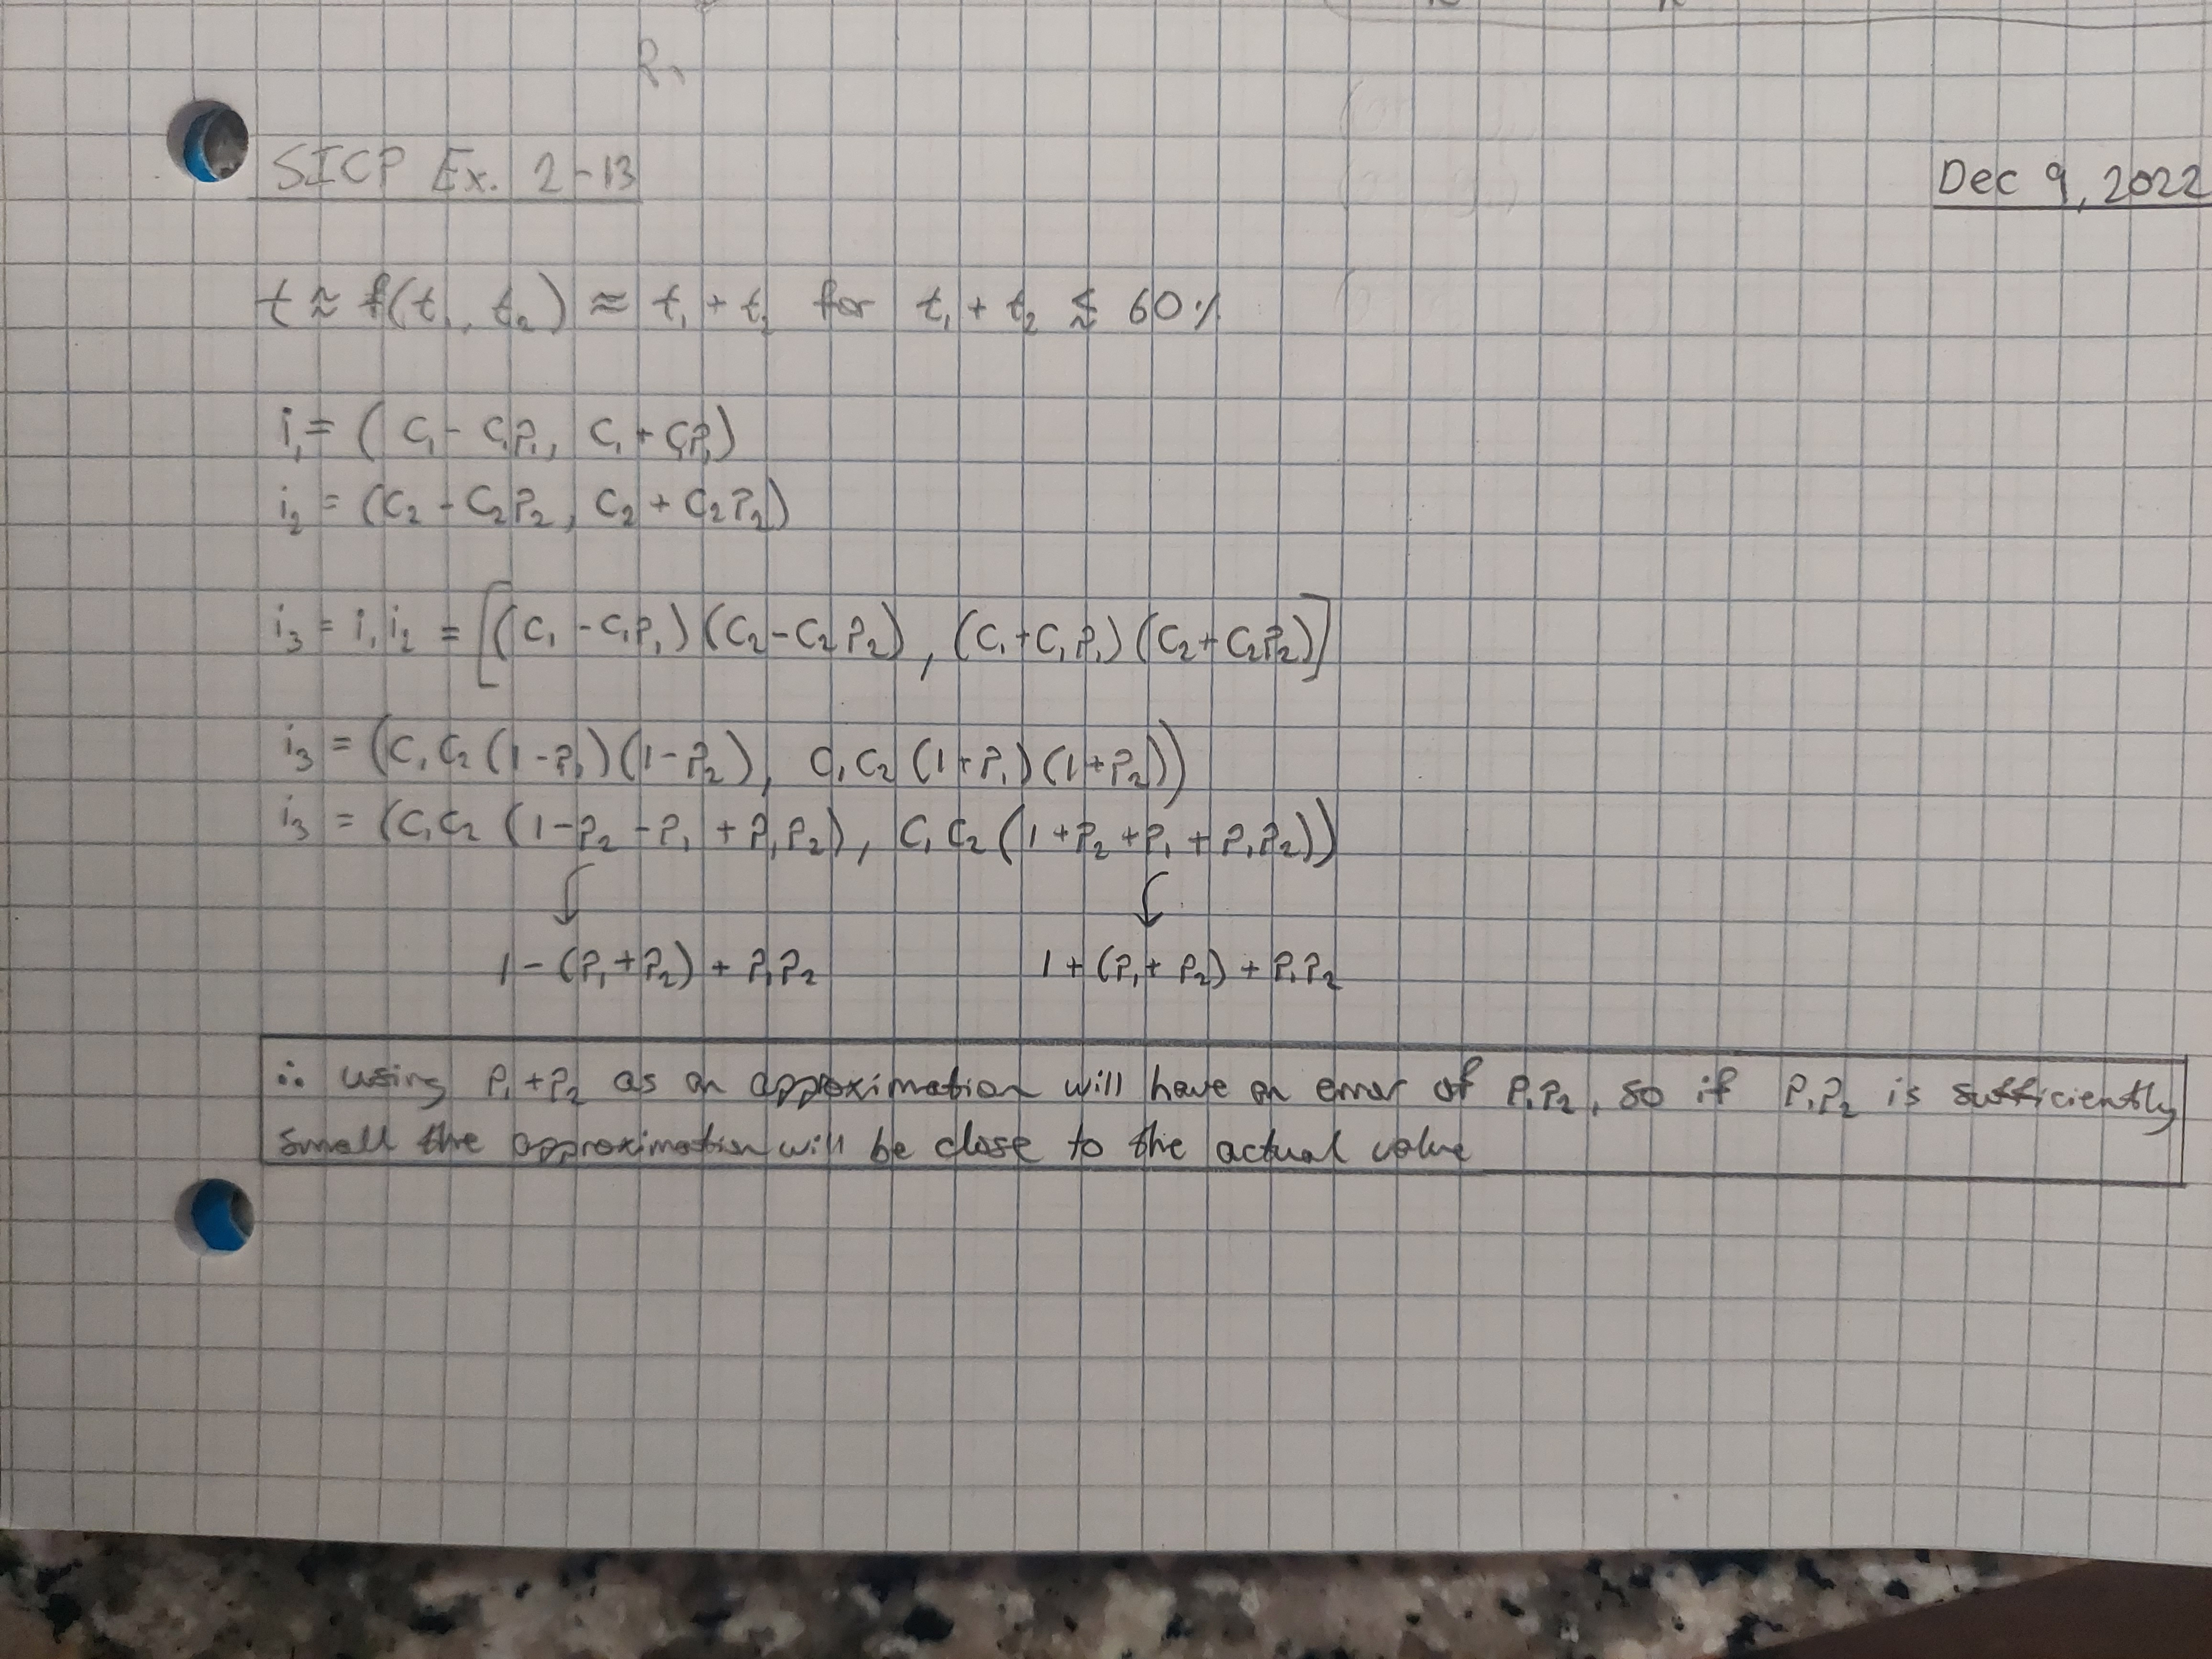 R₁
SICP Ex. 2-13
Dec 9, 2022
t ≈ f(t₁, t₂) ≈ t₁ + t₂ for t₁ + t₂ ⪅ 60%
i₁ = (C₁ - C₁P₁, C₁ + C₁P₁)
i₂ = (C₂ - C₂P₂, C₂ + C₂P₂)
i₃ = i₁i₂ = [(C₁ - C₁P₁)(C₂ - C₂P₂), (C₁ + C₁P₁)(C₂ + C₂P₂)]
i₃ = (C₁C₂(1-P₁)(1-P₂), C₁C₂(1+P₁)(1+P₂))
i₃ = (C₁C₂(1-P₂-P₁+P₁P₂), C₁C₂(1+P₂+P₁+P₁P₂))
1-(P₁+P₂)+P₁P₂ 1+(P₁+P₂)+P₁P₂
∴ using P₁+P₂ as an approximation will have an error of P₁P₂, so if P₁P₂ is sufficiently
small the approximation will be close to the actual value